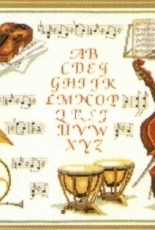 AB
CDEF
GHIJK
LMNOP
QRST
UVW
XYZ